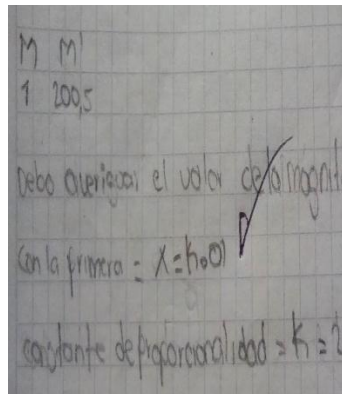 M M'
1 200,5
Debo averiguar el valor de la magnit
con la primera = X = k.a
constante de proporcionalidad = k = 2